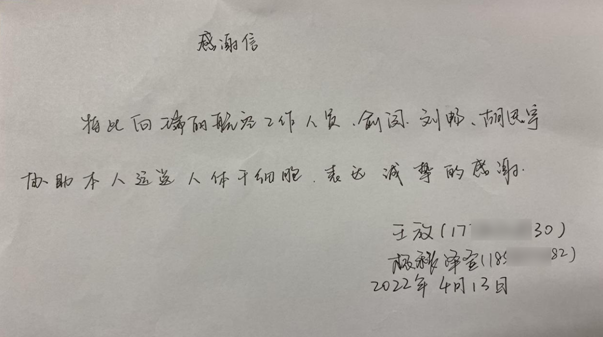 感谢信
特此向瑞丽航空工作人员、俞闵、刘郸、胡民宇
协助本人运送人体干细胞,表达诚挚的感谢.
王放(17 30)
泽宝(189 82)
2022年4月13日